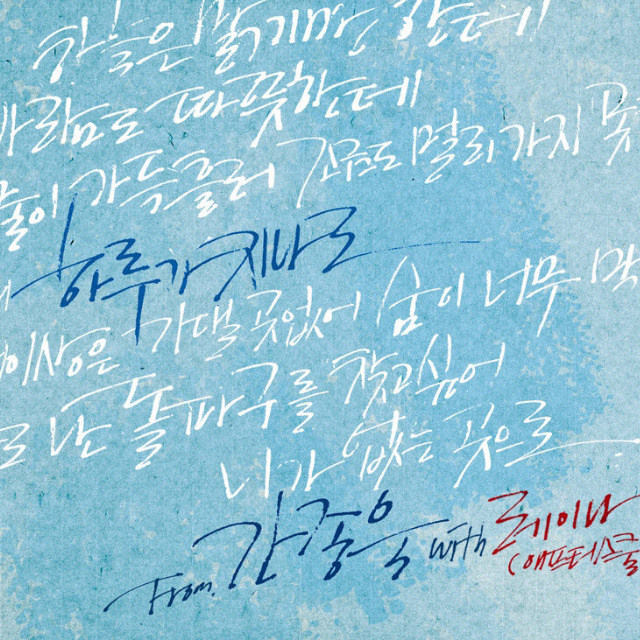 하늘은 맑기만 한데
바람도 따뜻한데
가득 흘러 조금도 멀리 가지 못
하루가
이상은 기댈 곳 없어 숨이 너무 막
난 돌파구를 찾고싶어
니가 없는 곳으로
From. 간종욱 with 레이나
(애프터스쿨